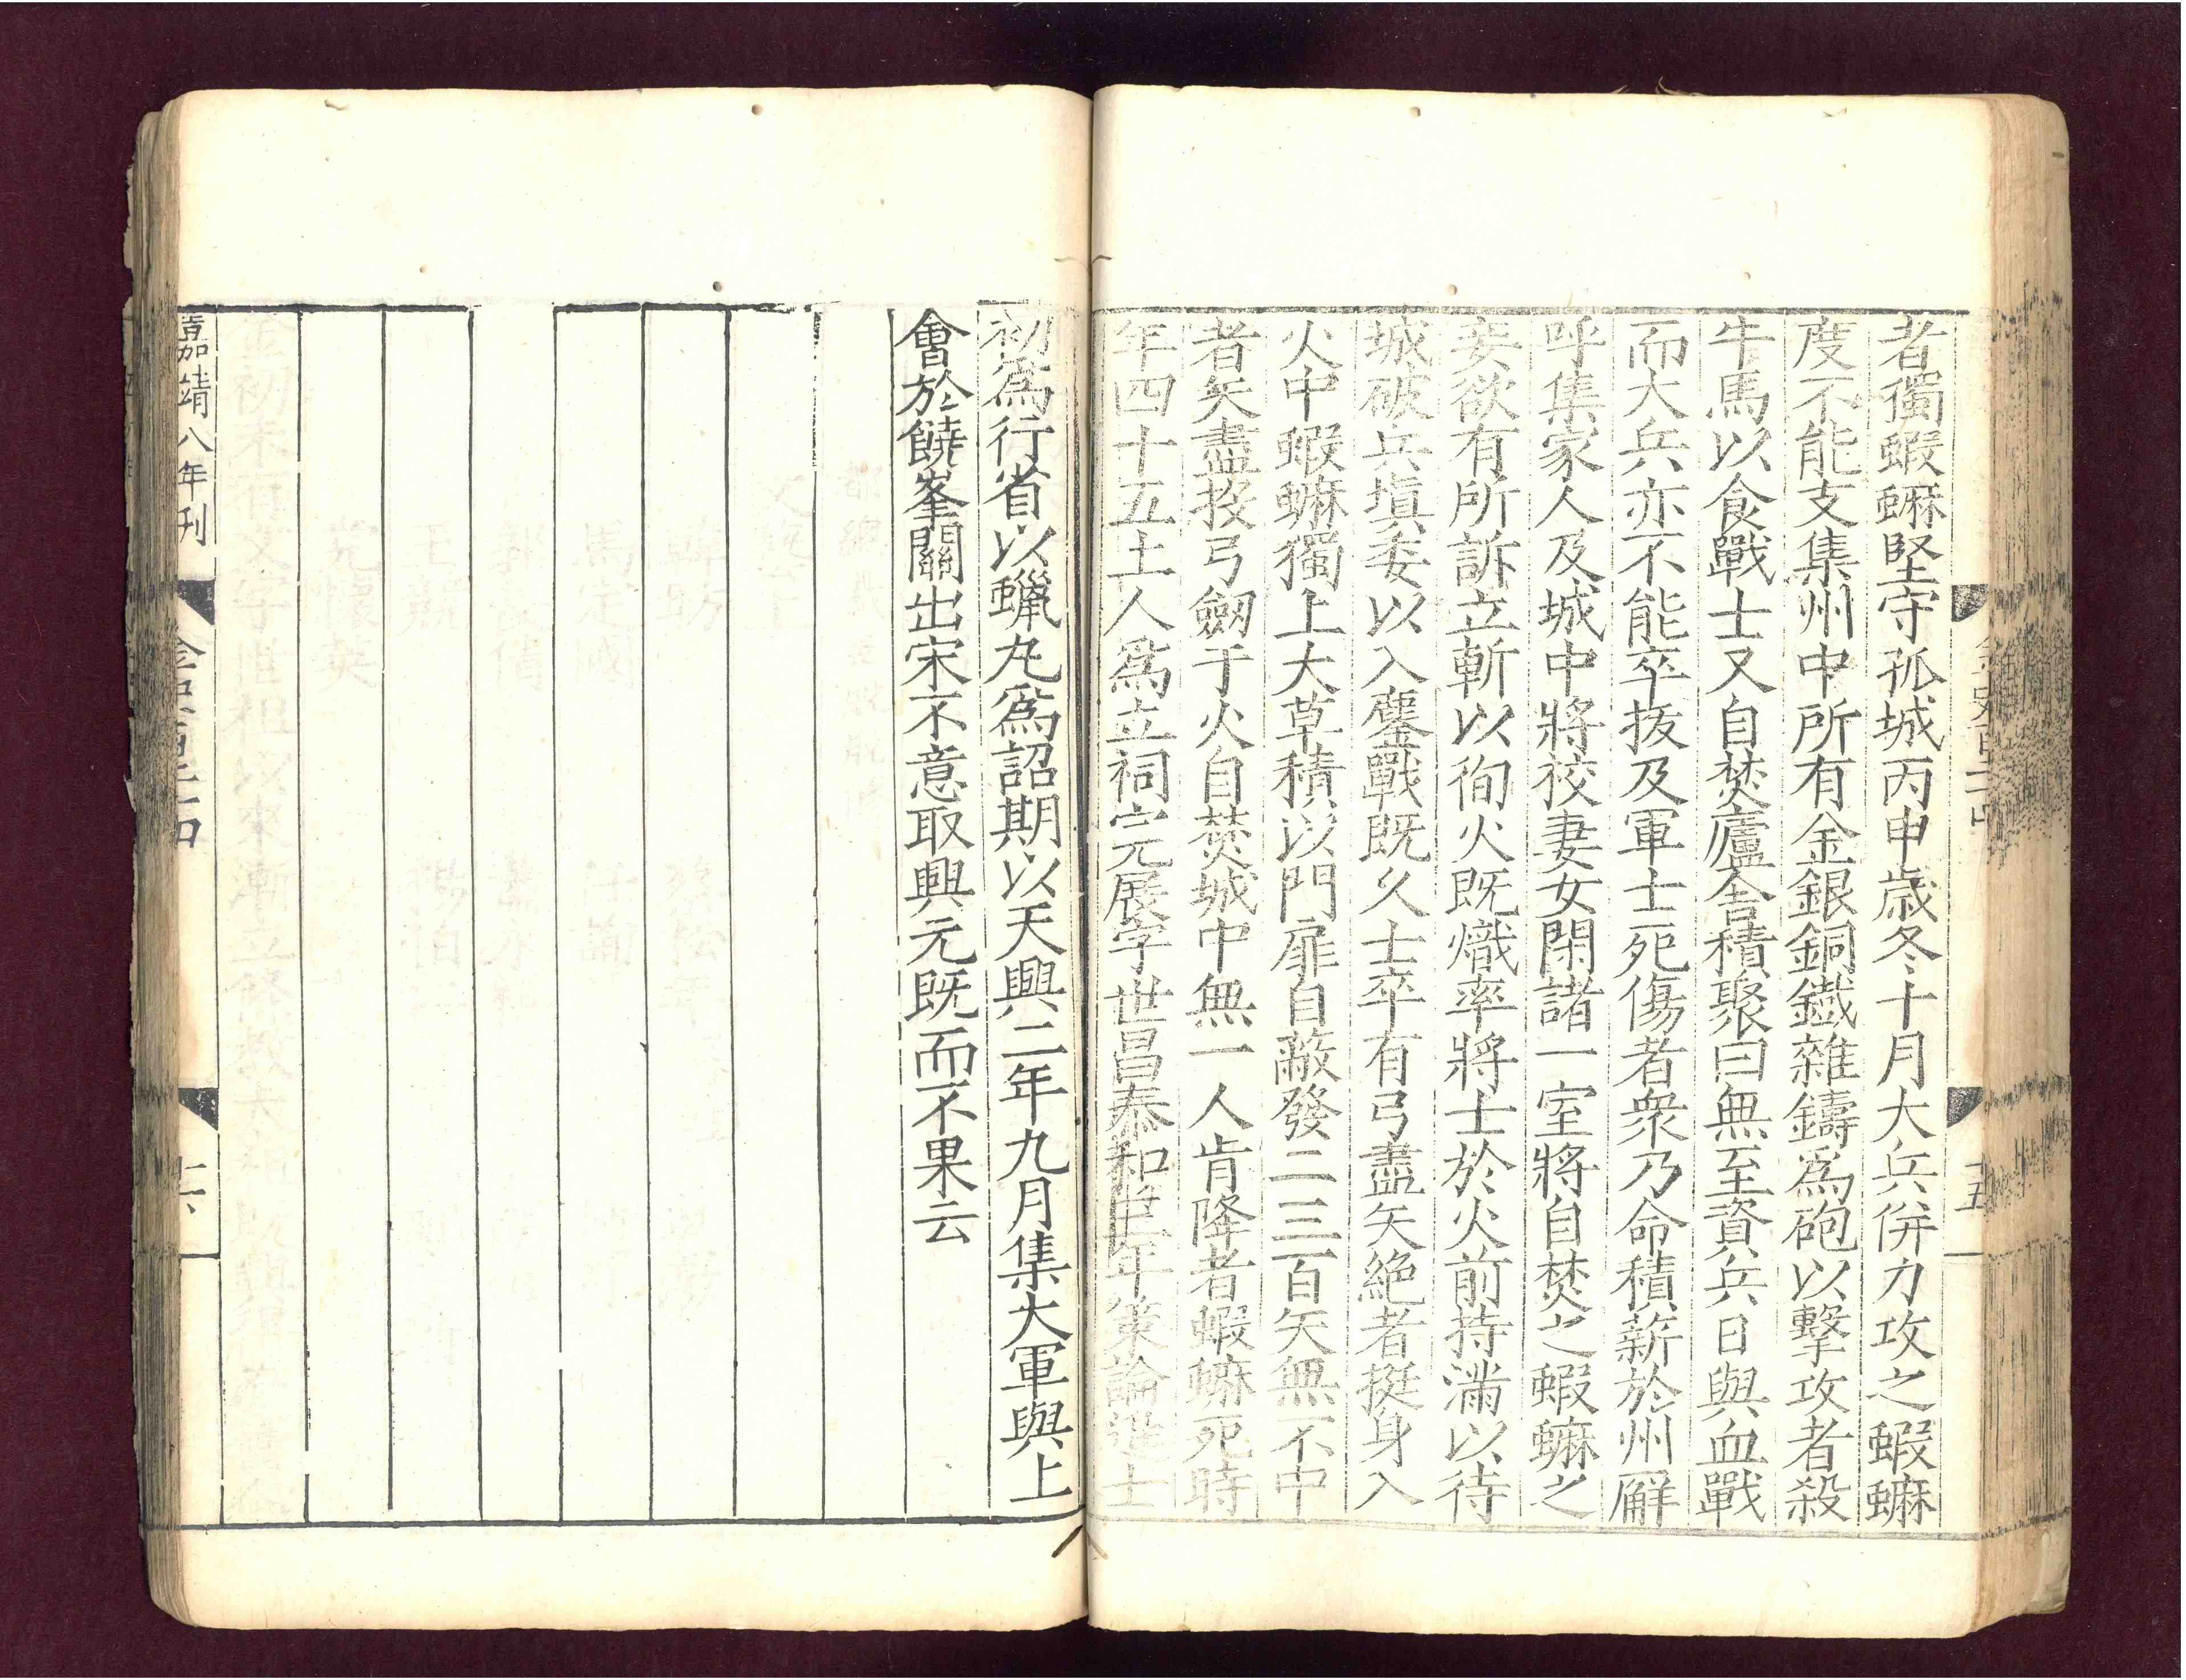 者獨蝦䗫堅守孤城丙申歲冬十月大兵併力攻之蝦䗫
度不能支集州中所有金銀銅鐵雜鑄爲砲以擊攻者殺
牛馬以食戰士又自焚廬舍積聚曰無至資兵日與血戰
而大兵亦不能卒拔及軍士死傷者衆乃命積薪於州廨
呼集家人及城中將校妻女閉諸一室將自焚之蝦䗫之
妾欲有所訴立斬以徇火既熾率將士於火前持滿以待
城破兵塡委以入鏖戰既久士卒有弓盡矢絕者挺身入
火中蝦䗫獨上大草積以門扉自蔽發二三百矢無不中
者矢盡投弓劒于火自焚城中無一人肯降者蝦䗫死時
年四十五土人爲立祠完展字世昌泰和三年策論進士
初爲行省以蠟丸爲詔期以天興二年九月集大軍與上
會於饒峯關出宋不意取興元既而不果云
嘉靖八年刊